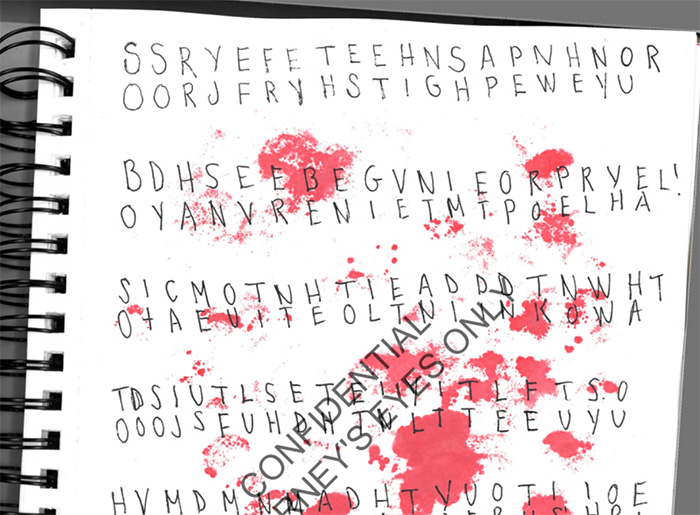 S S R Y E F E T E E H N S A P N H N O R
O O R J F R Y H S T I G H P E W E Y U
B D H S E E B E G V N I E O R P R Y E L!
O Y A N V R E N I E T M T P O E L H A
S I C M O T N H T I E A D D D T N W H T
O t A E U I T E O L T N I I N K O W A
T D S I U T L S E T E I Y I T L F T S O
O O O J S F U H D H T N L T T E E U Y U
CONFIDENTIAL
EYES ONLY
H V M D M N M A D H T V U O T I I O E